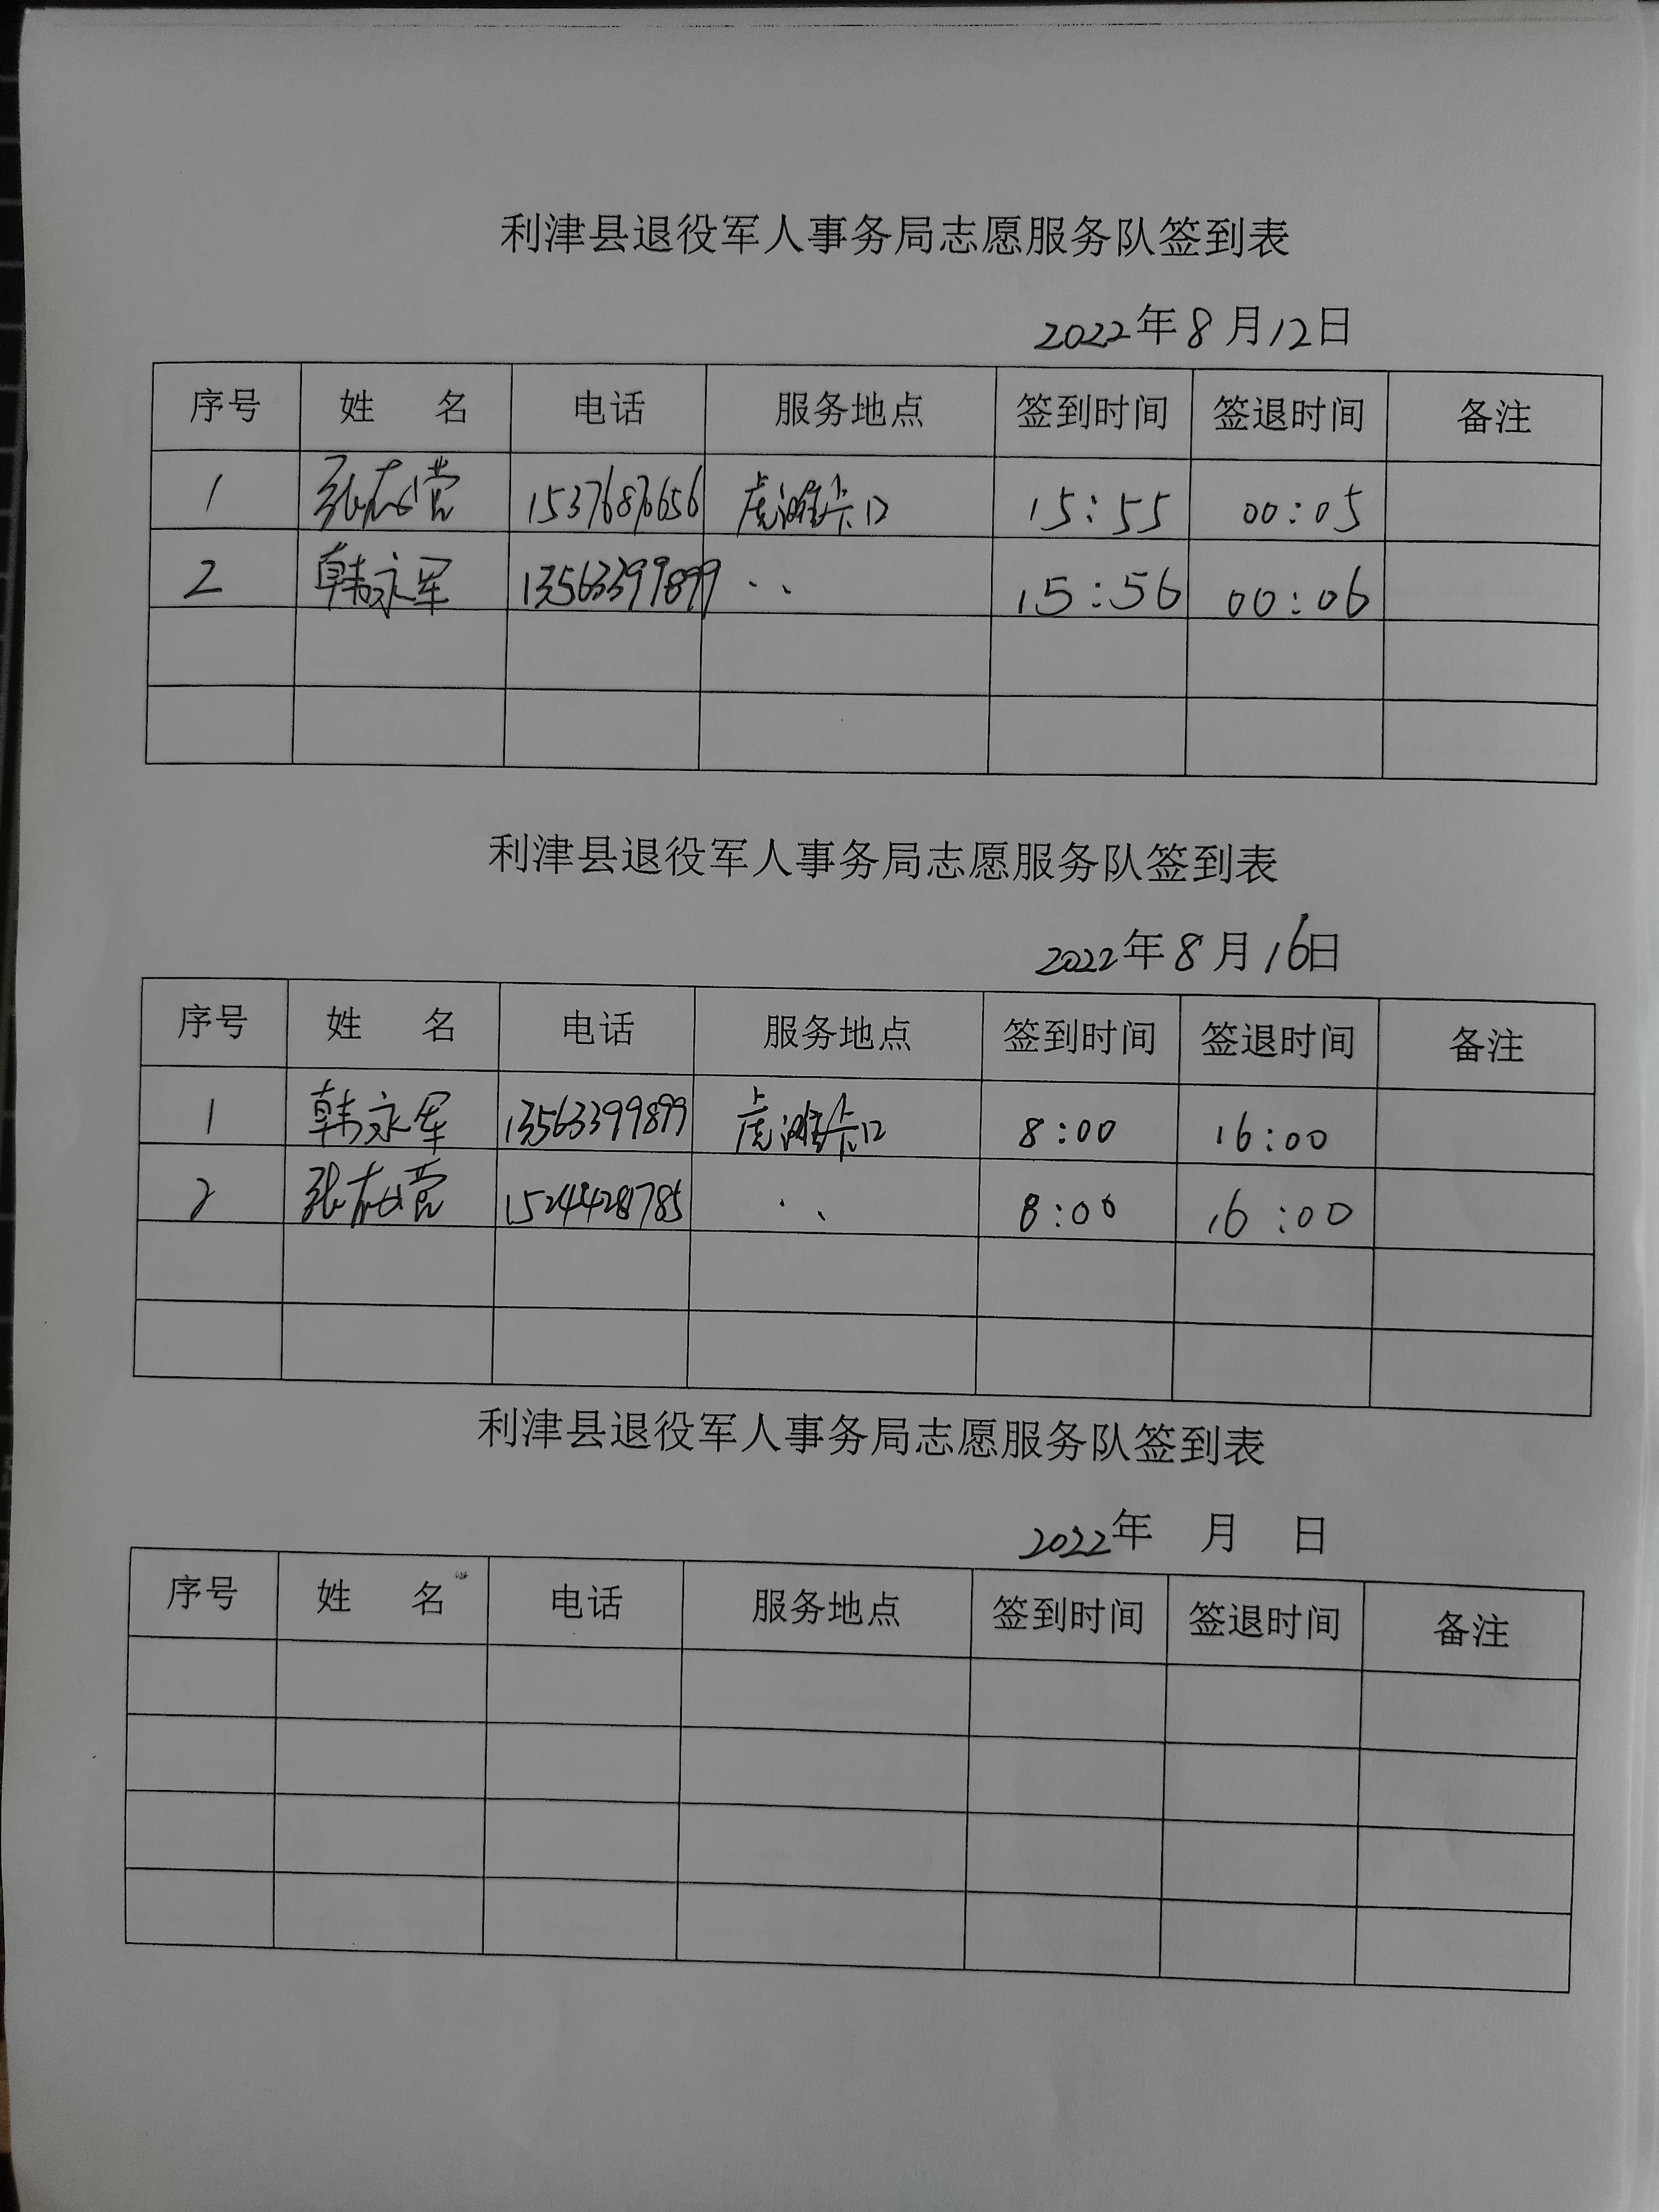 利津县退役军人事务局志愿服务队签到表
2022年8月12日
序号 姓 名 电话 服务地点 签到时间 签退时间 备注
1 15376876656 虎滩卡口 15:55 00:05
2 韩永军 13563399899 15:56 00:06
利津县退役军人事务局志愿服务队签到表
2022年8月16日
序号 姓 名 电话 服务地点 签到时间 签退时间 备注
1 韩永军 13563399899 虎滩卡口 8:00 16:00
2 15244428785 8:00 16:00
利津县退役军人事务局志愿服务队签到表
2022年 月 日
序号 姓 名 电话 服务地点 签到时间 签退时间 备注